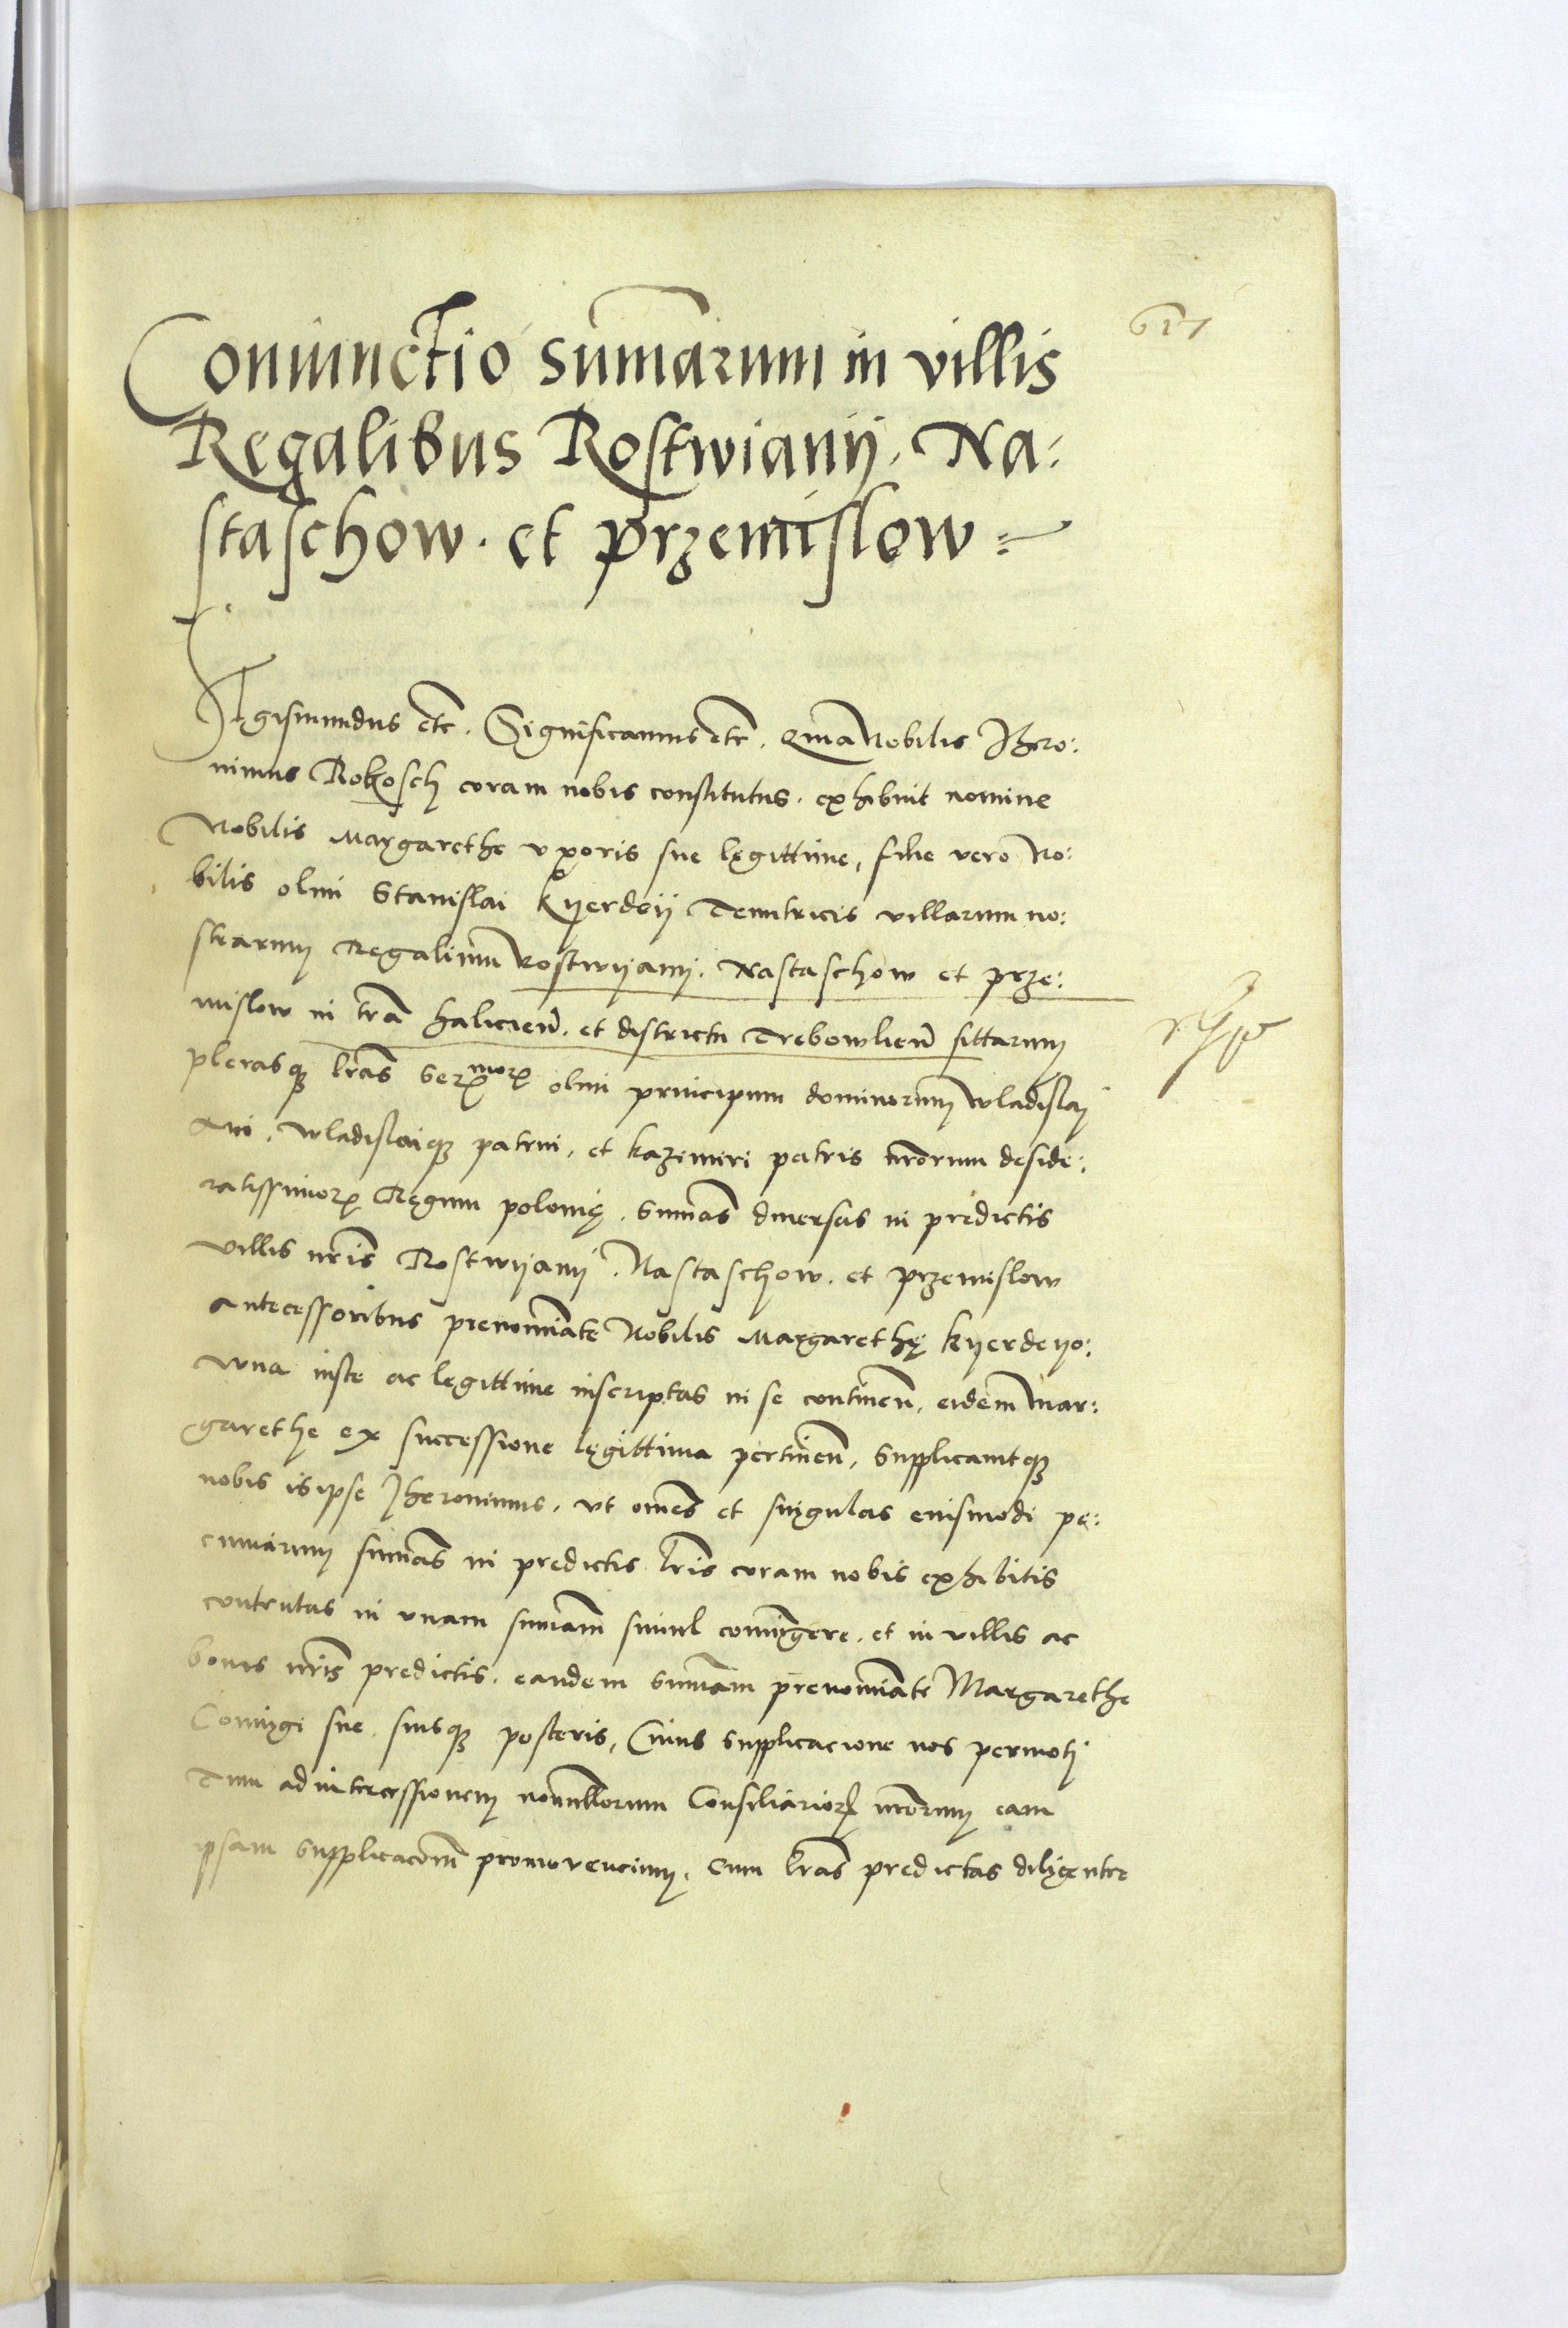 617
Coniunctio sum̄arum in villis
Regalibus Rostwianij. Na:
staschow. et przemislow
Sigismundus etc. Significamus etc. Quia Nobilis Ihero:
nimus Rokosch coram nobis constitutus. exhibuit nomine
Nobilis Margarethe vxoris sue legittime, filie vero No:
bilis olim Stanislai Kyerdeij Tenutricis villarum no:
strarum Regalium Rostwijanij. Nastaschow et prze:
mislow in tra͞ halicien̄. et districtu Trebowlien̄ sittarum
plerasq͛ l͞ras Ser^mor͛ olim principum dominorum Wladislaj
Aui. Wladislaiq͛ patrui, et Kazimiri patris n͞rorum deside:
ratissimor͛ Regum polonię. sum̄as diuersas in predictis
villis n͞ris Rostwijanij. Nastaschow. et przemislow
antecessoribus prenomi͞ate Nobilis Margarethę Kyerdeyo:
wna iuste ac legittime inscriptas in se continen̄. eidem Mar:
garethe ex successione legittima pertinen̄. Supplicauitq͛
nobis is ipse Jheronimus. vt om͞es et singulas euismodi pe:
cuniarum sum̄as in predictis l͞ris coram nobis exhibitis
contentas in vnam sum̄am simul coniu͞gere. et in villis ac
bonis n͞ris predictis. eandem sum̄am prenomi͞ate Margarethe
Coniugi sue. suisq͛ posteris, Cuius supplicacione nos permotj
Tum ad intercessionem nonnullorum Consiliarior͛ n͞rorum eam
ipsam supplicaco͞em promovencium. cum l͞ras predictas diligenter